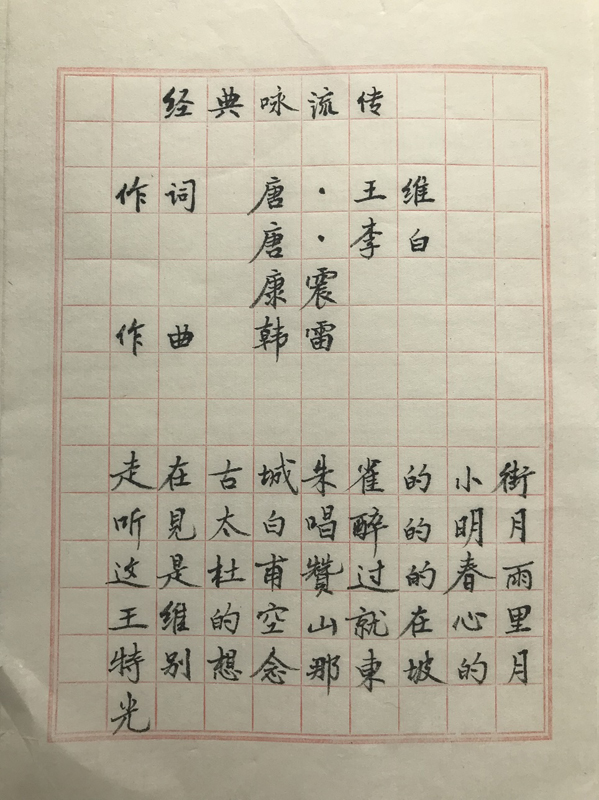 经典咏流传
作词 唐·王维
唐·李白
康震
作曲 韩雷
走在古城朱雀的小街
听見太白唱醉的明月
这是杜甫贊过的春雨
王维的空山就在心里
特别想念那東坡的月
光